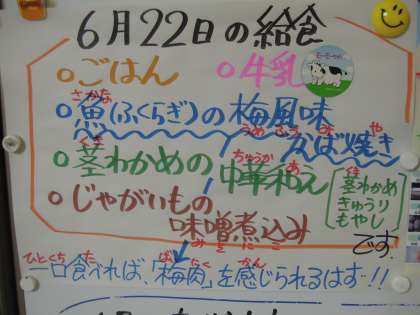 6月22日の給食
○ごはん ○牛乳
○魚(ふくらぎ)の梅風味
さかな
うめ ふうみ
かば焼き
や
○茎わかめの中華和え
くき
ちゅうか あ
茎わかめ
きゅうり
もやし
○じゃがいもの
味噌煮込み
みそ にこ
です。
ひとくち た ばいにく かん
一口食べれば、「梅肉」を感じられるはず!!